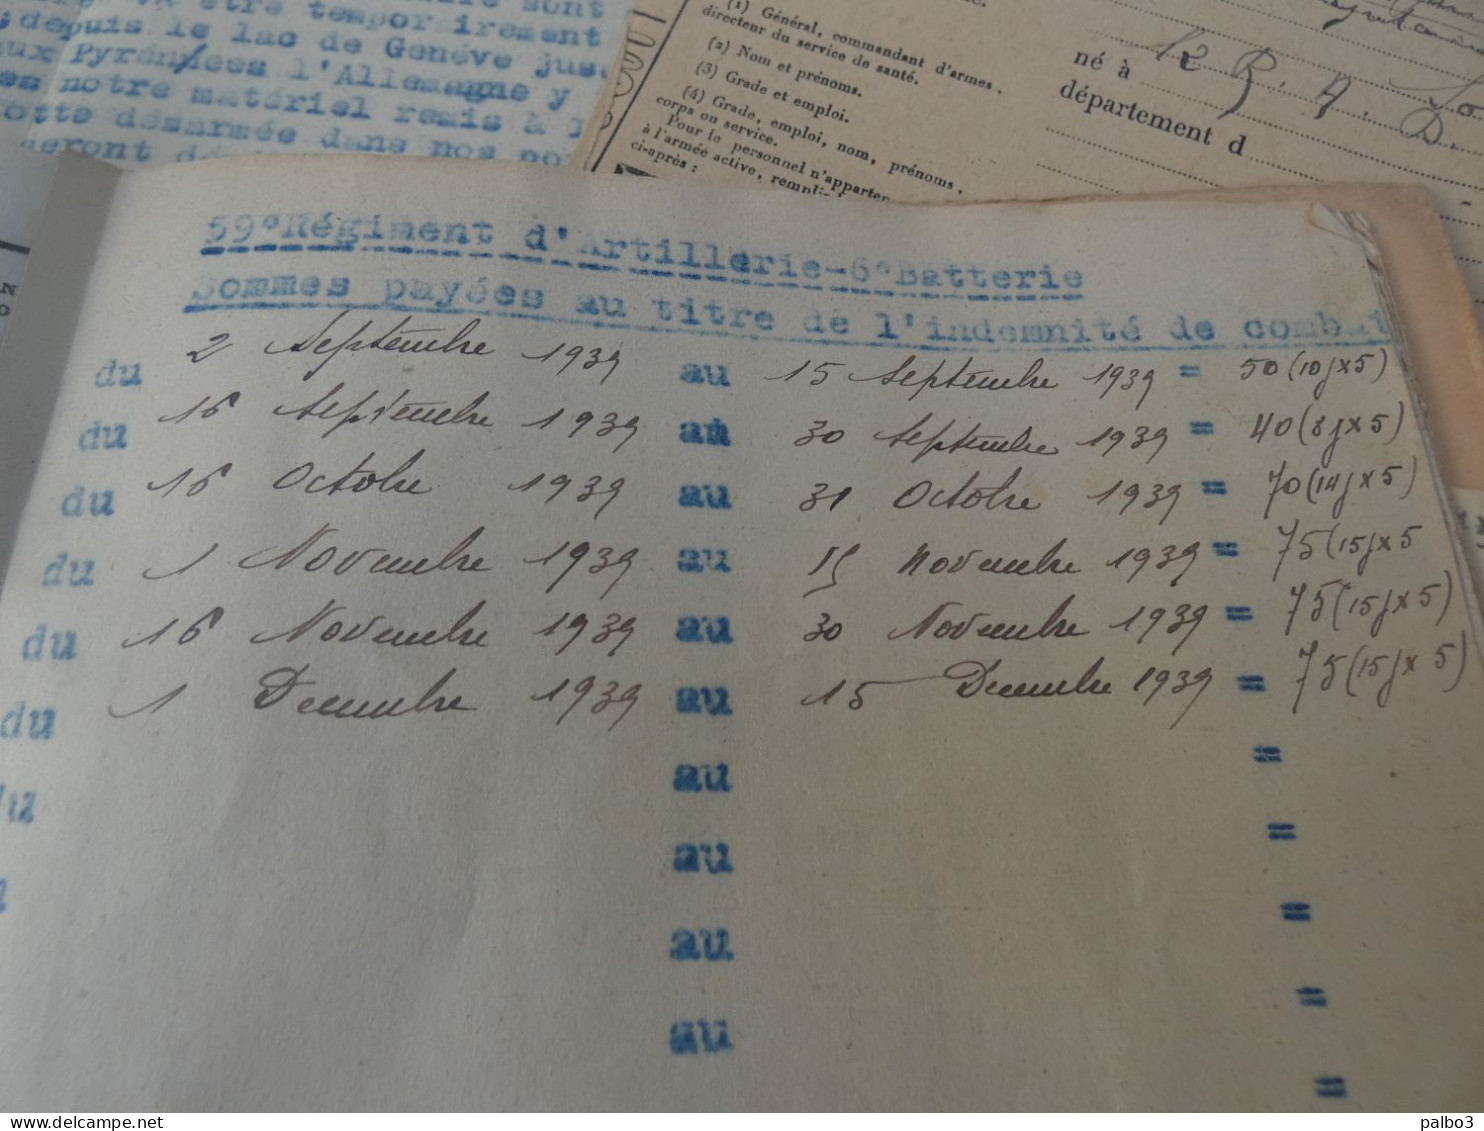 sont
être tempor irement
depuis le lac de Genéve jus
aux Pyrénnées l'Allemagne y
es notre matériel remis à
otte désarmée dans nos po
seront dé
(1) Général, commandant d'armes,
directeur du service de santé.
(2) Nom et prénoms.
(3) Grade et emploi.
(4) Grade, emploi, nom, prénoms,
corps ou service.
Pour le personnel n'apparten
à l'armée active, rempli
ci-après :
né à
département d
59°Régiment d'Artillerie-6°Batterie
Sommes payées au titre de l'indemnité de combat
du 2 Septembre 1939 au 15 Septembre 1939 = 50 (10j x 5)
du 16 Septembre 1939 au 30 Septembre 1939 = 40 (8j x 5)
du 16 Octobre 1939 au 31 Octobre 1939 = 70 (14j x 5)
du 1 Novembre 1939 au 15 Novembre 1939 = 75 (15j x 5
du 16 Novembre 1939 au 30 Novembre 1939 = 75 (15j x 5)
du 1 Decembre 1939 au 15 Decembre 1939 = 75 (15j x 5)
du au =
au =
au =
au =
=
palbo3